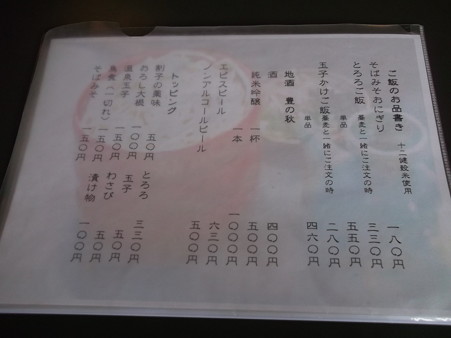 ご飯のお品書き 十二健穀米使用
そばみそおにぎり 一八〇円
とろろご飯 蕎麦と一緒にご注文の時 三三〇円
単品 五五〇円
玉子かけご飯 蕎麦と一緒にご注文の時 二八〇円
単品 四六〇円
地酒 豊の秋
酒 四〇〇円
純米吟醸 一杯 五〇〇円
一本 一〇〇〇円
エビスビール 六三〇円
ノンアルコールビール 五〇〇円
トッピング
割子の薬味 五〇円 とろろ 三三〇円
おろし大根 一〇〇円 玉子 五〇円
温泉玉子 一五〇円 わさび 五〇円
（一切れ） 一五〇円 漬け物 一〇〇円
そばみそ 一五〇円